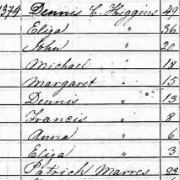 1374 Dennis C. Higgins 40
Eliza " 36
John " 20
Michael " 18
Margaret " 15
Dennis " 13
Francis " 8
Anna " 6
Eliza " 3
Patrick Marres 23